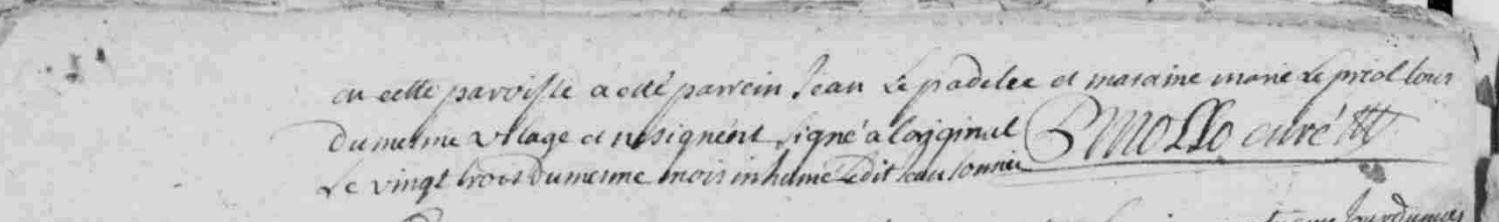 en cette paroisse a eté parrein Jean Le padelec et maraine marie Le preol tous
du mesme vilage et ne signent signé a lorjginal Mollo curé
Le vingt trois du mesme mois inhumé ledit jean